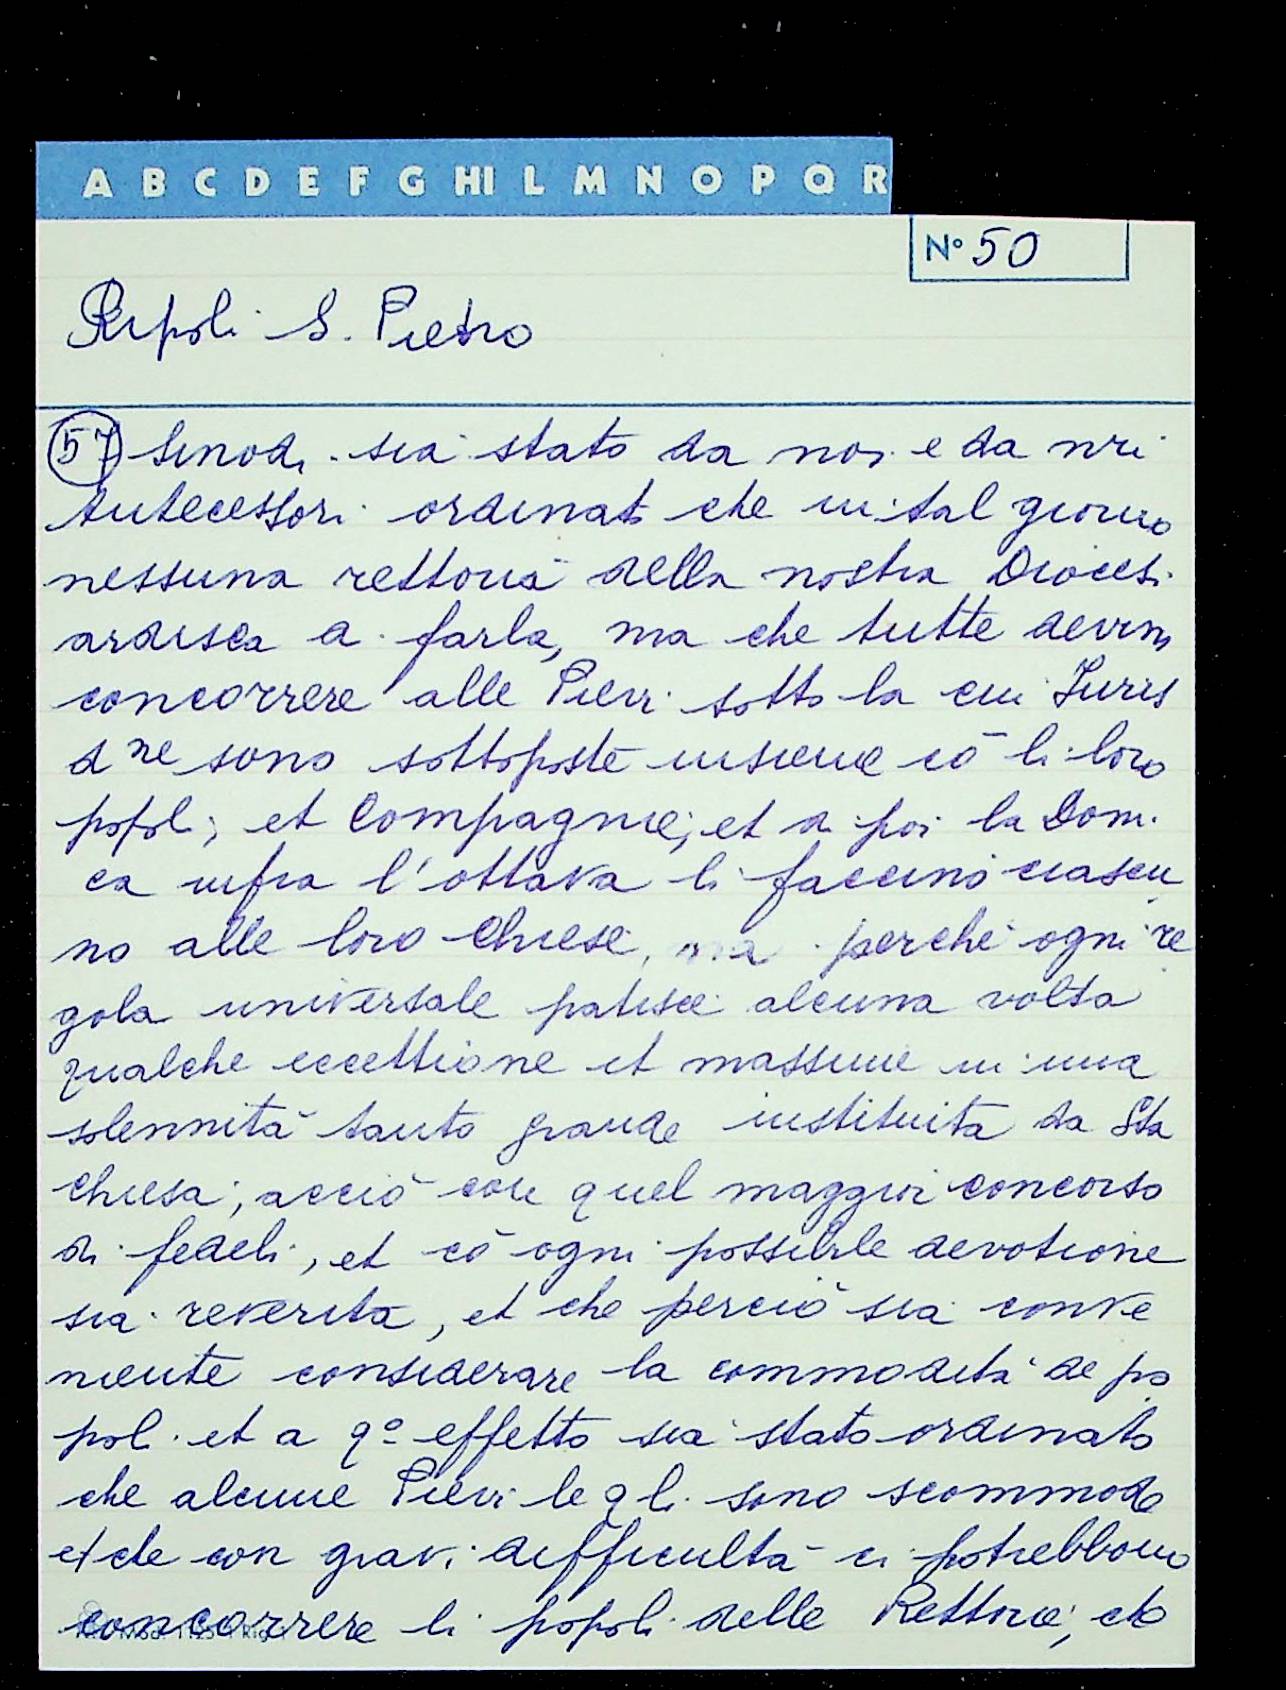 A B C D E F G HI L M N O P Q R
N° 50
Ripoli S. Pietro
57 Sinodi sia stato da noi e da nri
Antecessori ordinato che in tal giorno
nessuna rettoria della nostra Diocesi
ardisca a farla, ma che tutte devino
concorrere alle Pievi sotto la cui Juris
d ne sono sottoposte insieme cō li loro
popoli, et Compagnie, et di poi la Dom.
ca infra l'ottava li faccino ciascu
no alle loro Chiese, ma perchè ogni re
gola universale patisce alcuna volta
qualche eccettione et massime in una
solennità tanto grande instituita da Sta
Chiesa, acciò con quel maggior concorso
di fedeli, et cō ogni possibile devotione
sia reverita, et che perciò sia conve
niente considerare la commodità de po
poli et a qo effetto sia stato ordinato
che alcune Pievi le qli sono scommode
et che con gravi difficultà ci potrebbono
concorrere li popoli delle Rettorie,